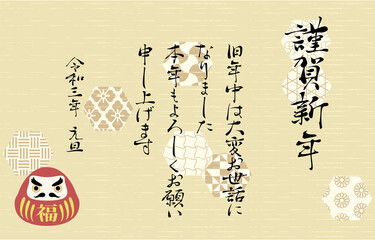 謹賀新年
旧年中は大変お世話に
なりました
本年もよろしくお願い
申し上げます
令和三年 元旦
福